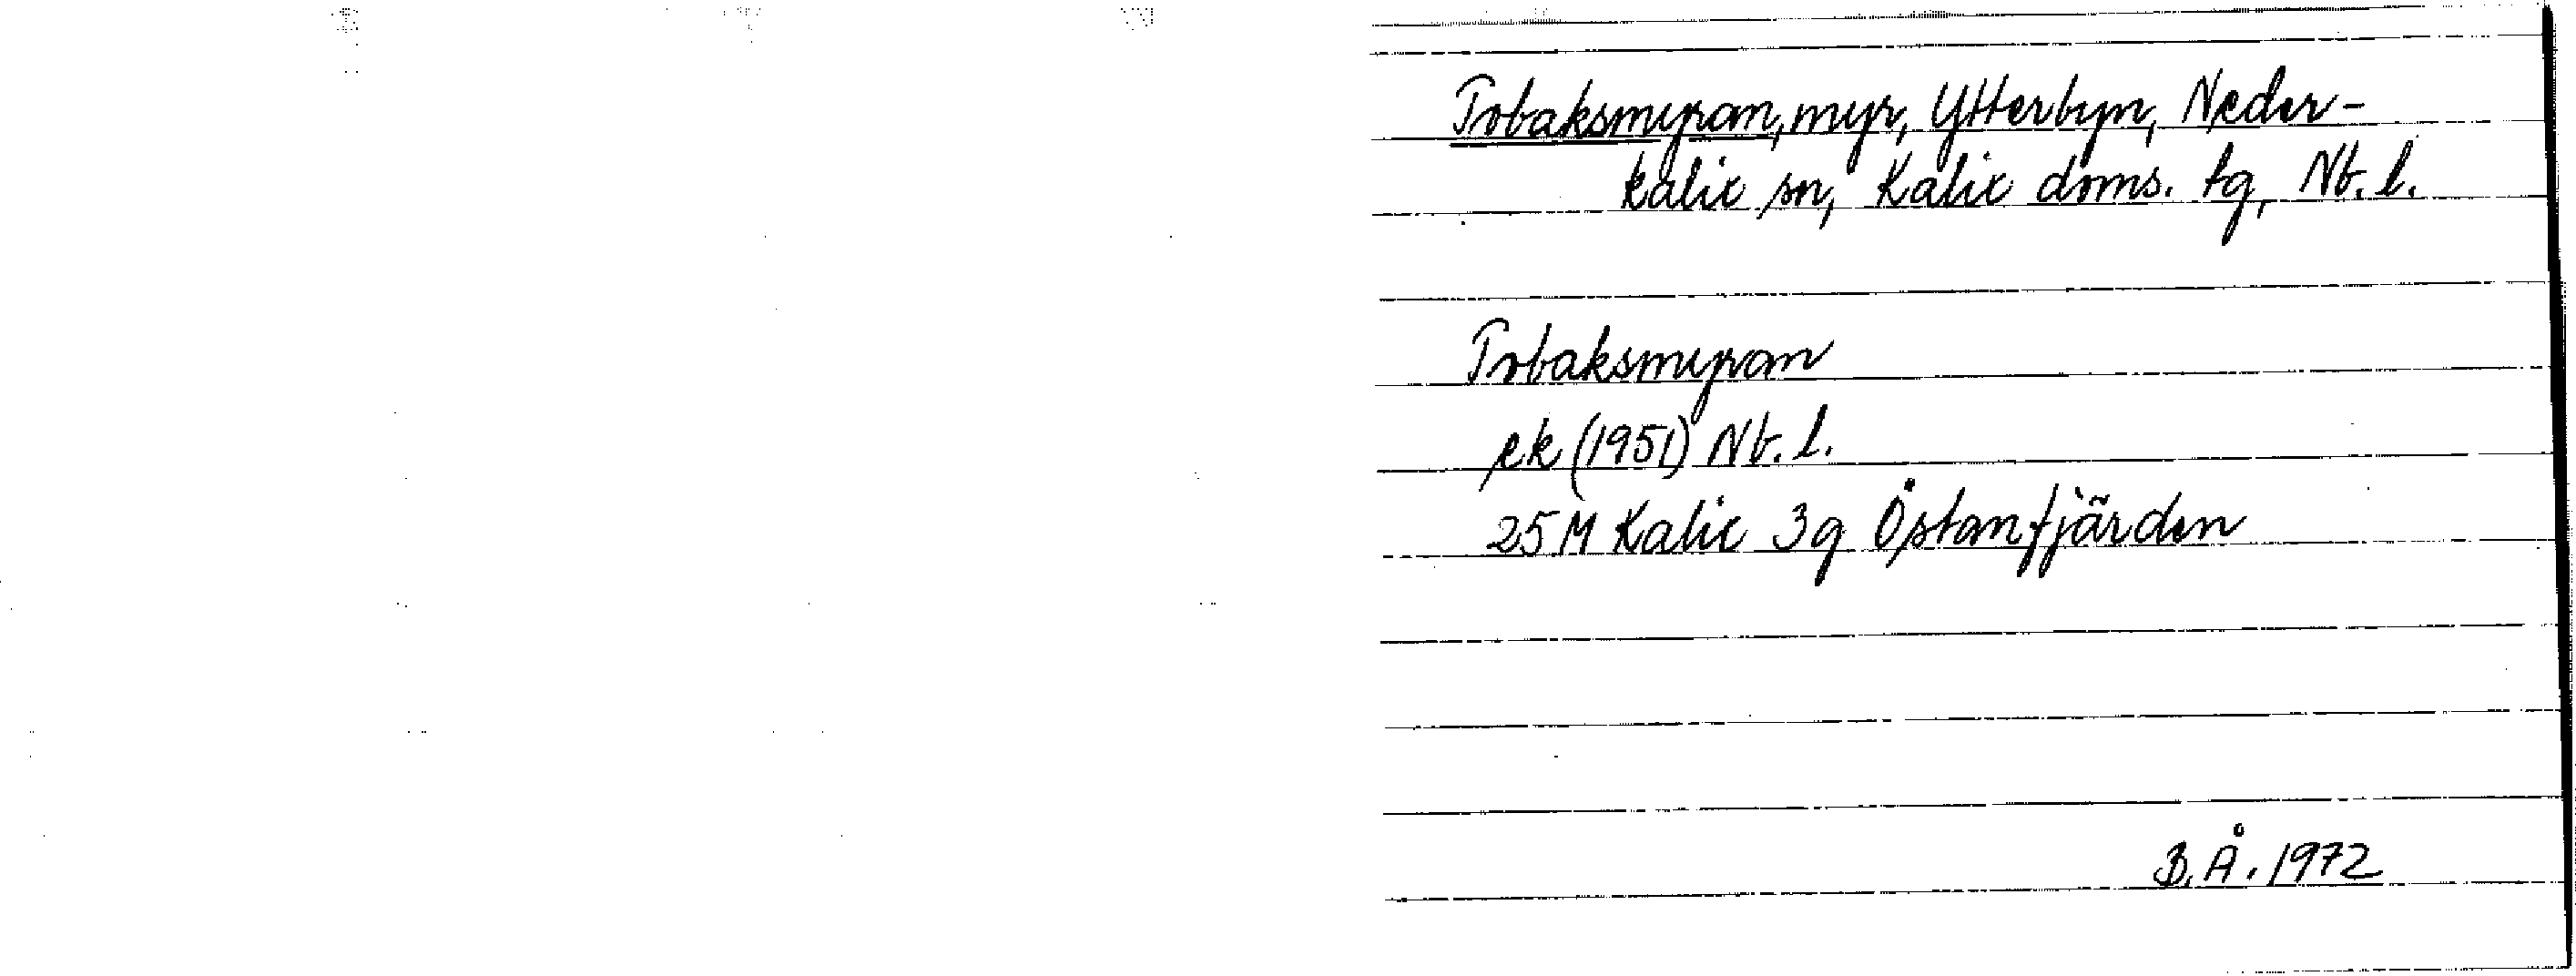 Tobaksmyran, myr, Ytterbyn, Neder-
kalix sn, Kalix doms. tg, Nb. l.
Tobaksmyran
ek (1951) Nb. l.
25 M Kalix 3g Östanfjärden
B. Å. 1972